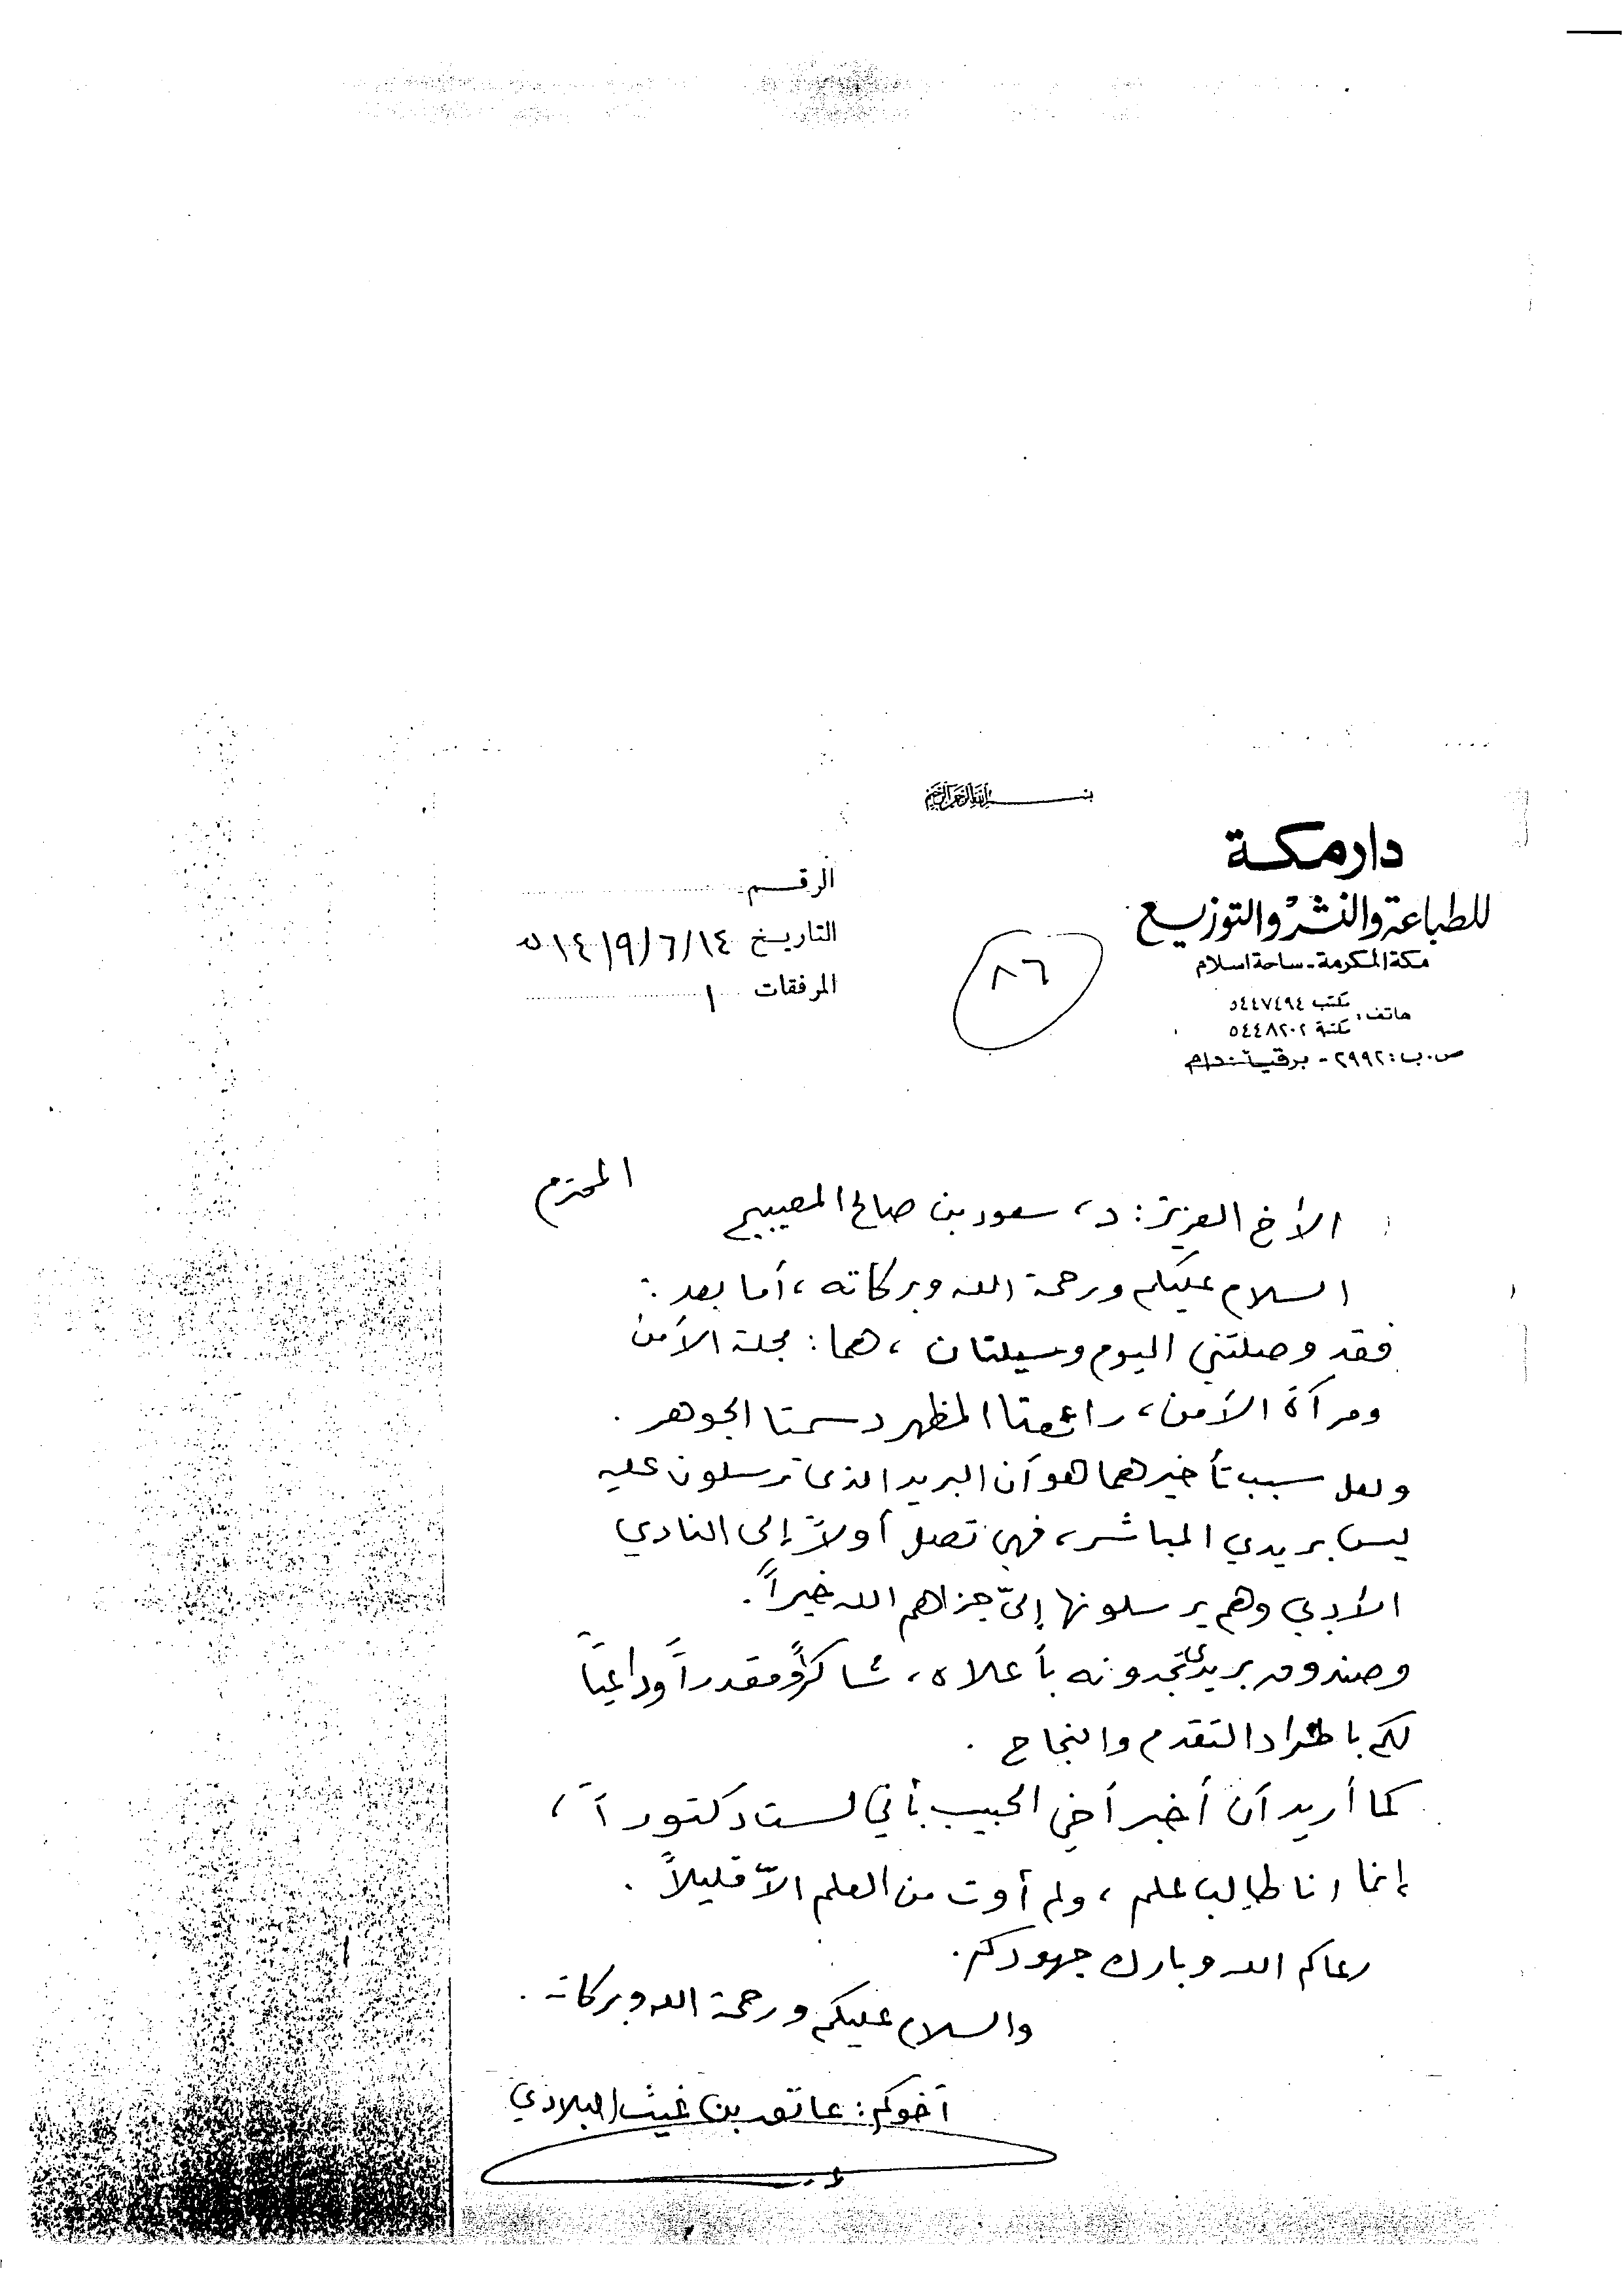 بسم الله الرحمن الرحيم
دار مكة
للطباعة والنشر والتوزيع
مكة المكرمة - ساحة اسلام
هاتف: مكتب ٥٤٤٧٤٩٤
مكتبة ٥٤٤٨٢٠٢
ص.ب: ٢٩٩٢ - برقيا: دام
الرقم
التاريخ ١٤/٦/١٤١٩ھ
المرفقات ١
٨٦
الأخ العزيز: د، سعود بن صالح المصيبيح المحترم
السلام عليكم ورحمة الله وبركاته، أما بعد:
فقد وصلتني اليوم وسيلتان، هما: مجلة الأمن
ومرآة الأمن، رائعتا المظهر دسمتا الجوهر.
ولعل سبب تأخيرهما هو أن البريد الذي ترسلون عليه
ليس بريدي المباشر، فهي تصل أولاً إلى النادي
الأدبي وهم يرسلونها إليّ جزاهم الله خيراً.
وصندوق بريدي تجدونه بأعلاه، شاكراً ومقدراً وداعياً
لكم باطراد التقدم والنجاح.
كما أريد أن أخبر أخي الحبيب بأني لست دكتوراً،
إنما أنا طالب علم، ولم أوت من العلم الاّ قليلاً.
رعاكم الله وبارك جهودكم.
والسلام عليكم ورحمة الله وبركاته.
أخوكم: عاتق بن غيث البلادي